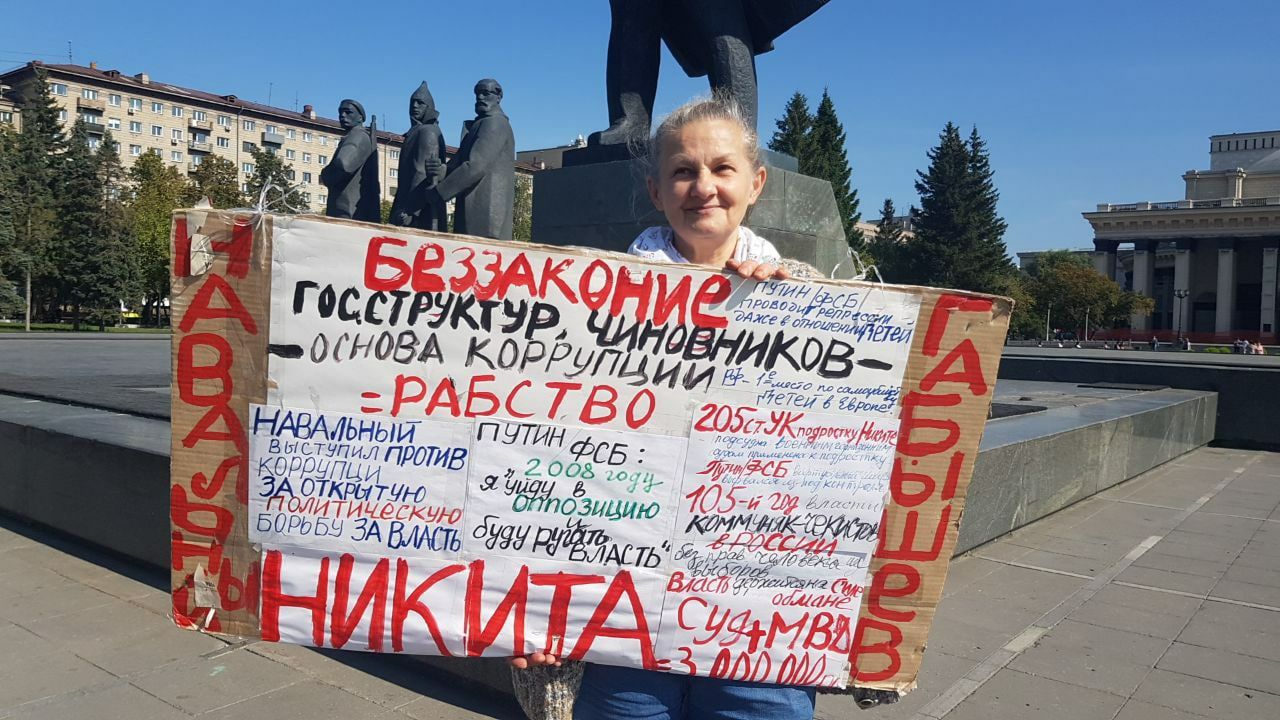 НАВАЛЬНЫЙ
БЕЗЗАКОНИЕ
ГОС.СТРУКТУР, ЧИНОВНИКОВ-
-ОСНОВА КОРРУПЦИИ
=РАБСТВО
ПУТИН /ФСБ/
ПРОВОДИТ РЕПРЕССИИ
ДАЖЕ В ОТНОШЕНИИ ДЕТЕЙ
РФ-1е место по
детей в Европе
НАВАЛЬНЫЙ
ВЫСТУПИЛ ПРОТИВ
КОРРУПЦИ
ЗА ОТКРЫТУЮ
ПОЛИТИЧЕСКУЮ
БОРЬБУ ЗА ВЛАСТЬ
ПУТИН ФСБ:
2008 году
"я уйду в
оппозицию
и
буду ругать
власть"
205 ст. УК подростку Никите
подростку
Путин ФСБ
105-й год власти
КОММУНЯК-ЧЕКИСТОВ
в РОССИИ
без прав человека и
выборов
Власть держится на силе
обмане
Суд+МВД
=3 000 000
НИКИТА
ГАБЫШЕВ